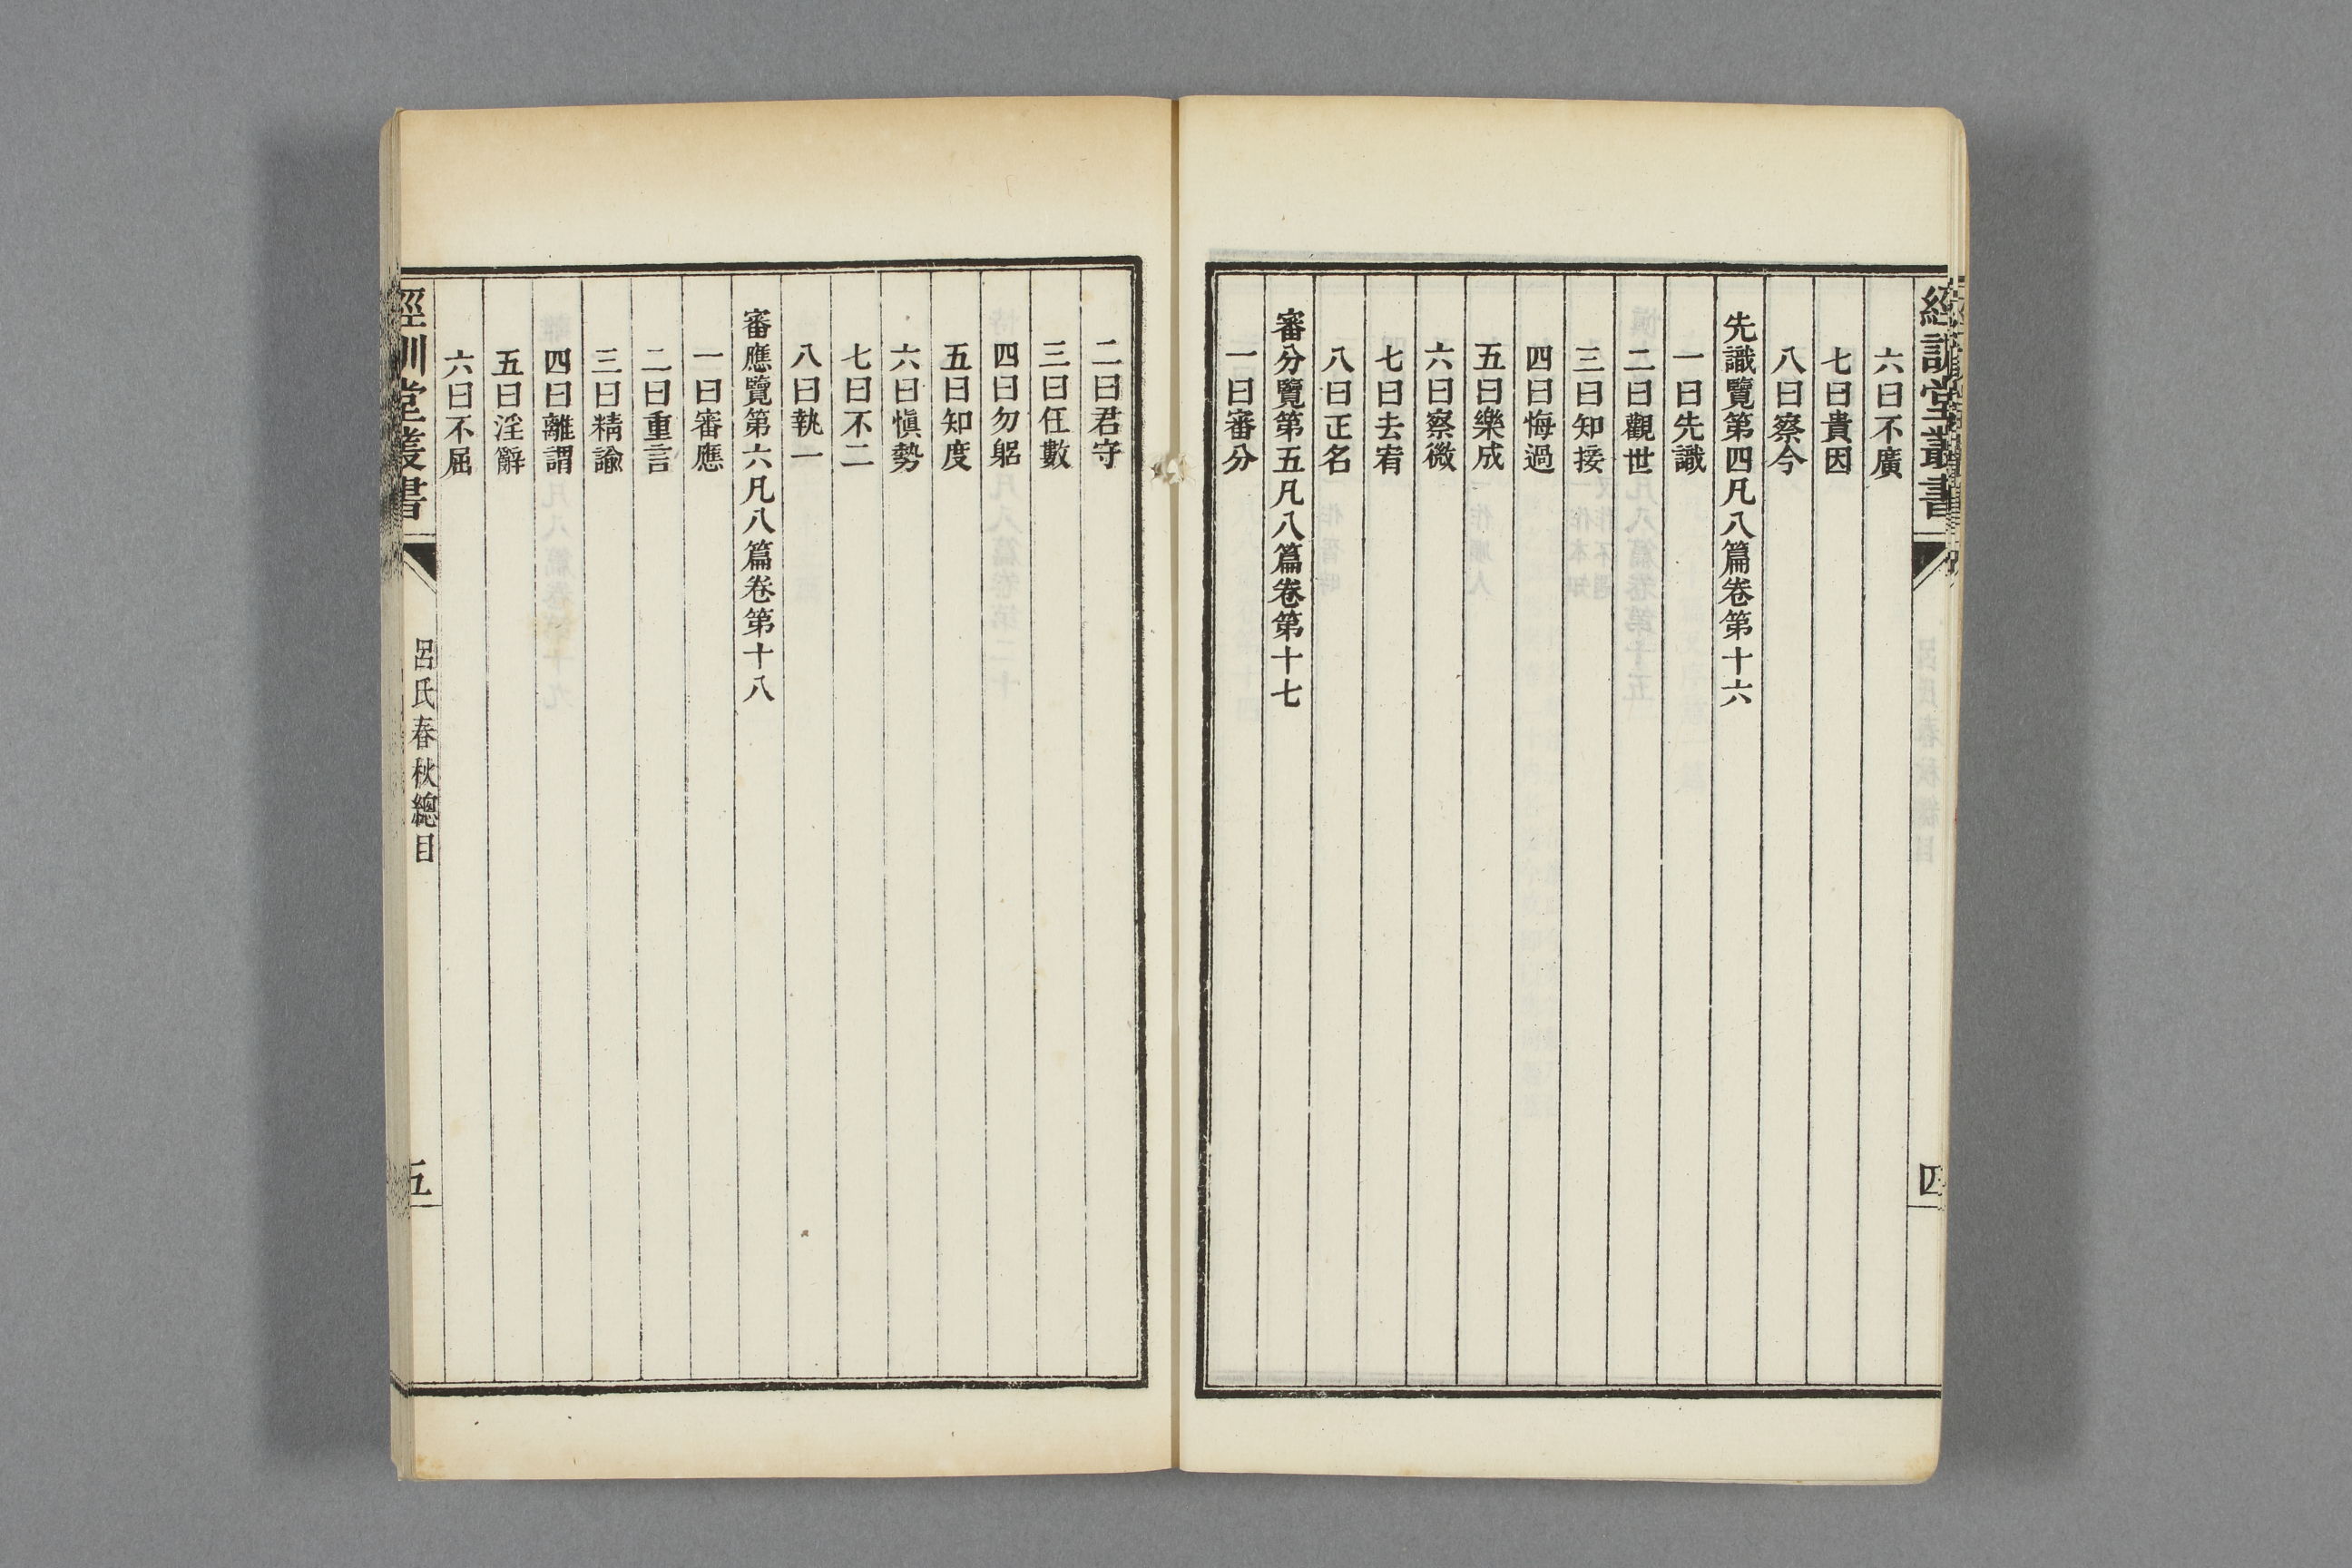 經訓堂叢書
四
六曰不廣
七曰貴因
八曰察今
先識覽第四凡八篇卷第十六
一曰先識
二曰觀世
三曰知接
四曰悔過
五曰樂成
六曰察微
七曰去宥
八曰正名
審分覽第五凡八篇卷第十七
一曰審分
二曰君守
三曰任數
四曰勿躬
五曰知度
六曰愼勢
七曰不二
八曰執一
審應覽第六凡八篇卷第十八
一曰審應
二曰重言
三曰精諭
四曰離謂
五曰淫辭
六曰不屈
經訓堂叢書
呂氏春秋總目
五